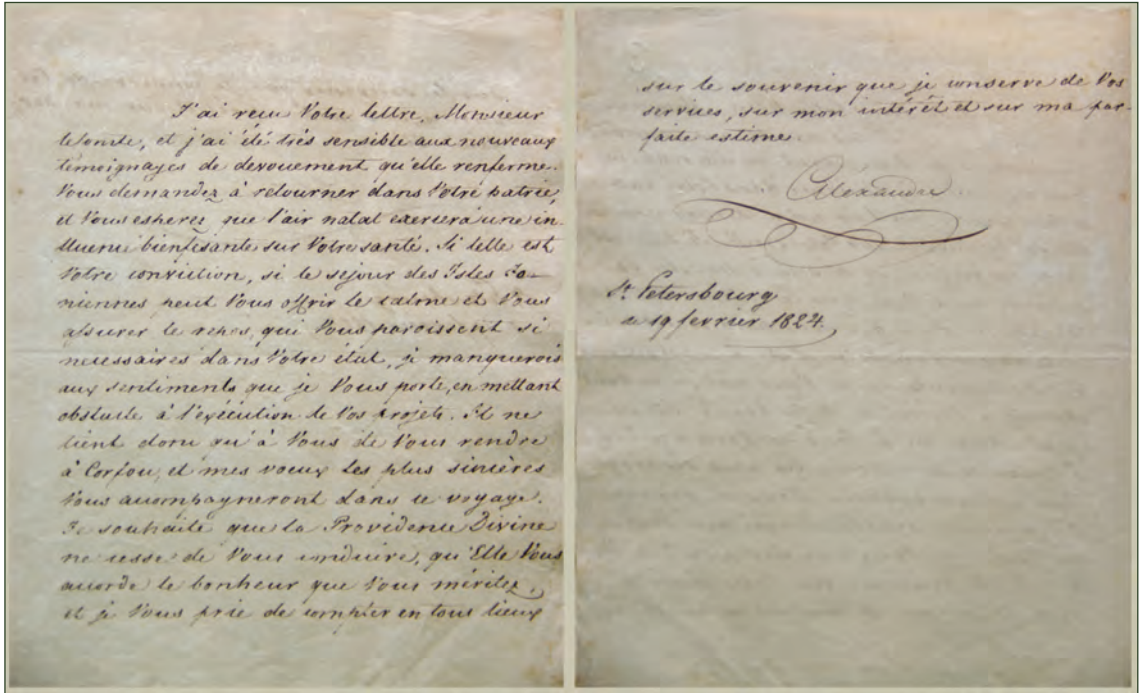 J'ai reçu Votre lettre, Monsieur
le Comte, et j'ai été très sensible aux nouveaux
témoignages de devouement qu'elle renferme.
Vous demandez à retourner dans Votre patrie,
et Vous esperez que l'air natal exercera une in-
fluence bienfisante sur Votre santé. Si telle est
Votre conviction, si le sejour des Isles Io-
niennes peut Vous offrir le calme et Vous
assurer le repos, qui Vous paroissent si
necessaires dans Votre état, je manquerois
aux sentiments que je Vous porte, en mettant
obstacle à l'exécution de Vos projets. Il ne
tient donc qu'à Vous de Vous rendre
à Corfou, et mes voeux les plus sincères
Vous accompagneront dans ce voyage.
Je souhaite que la Providence Divine
ne cesse de Vous conduire, qu'Elle Vous
accorde le bonheur que Vous méritez,
et je Vous prie de compter en tous lieux
sur le souvenir que je conserve de Vos
services, sur mon intérêt et sur ma par-
faite estime.
Alexandre.
St. Petersbourg
ce 19 fevrier 1824.